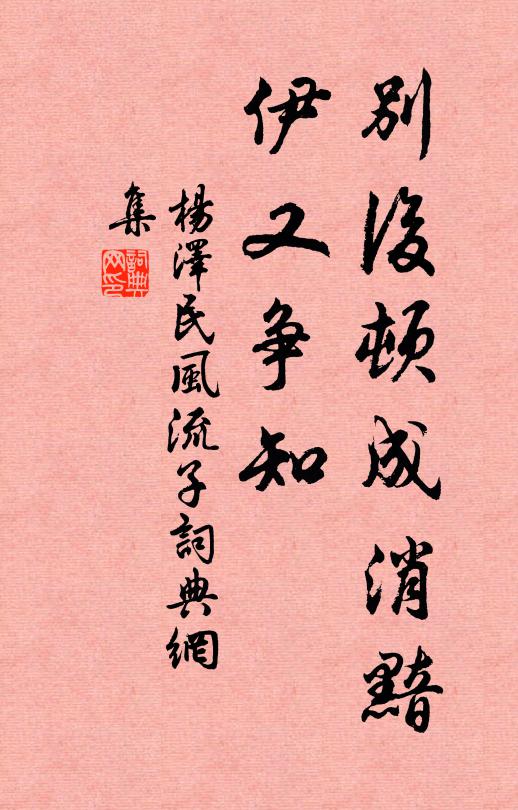 別後頓成消黯
伊又爭知
楊澤民風流子詞典網
集
詞典
网印